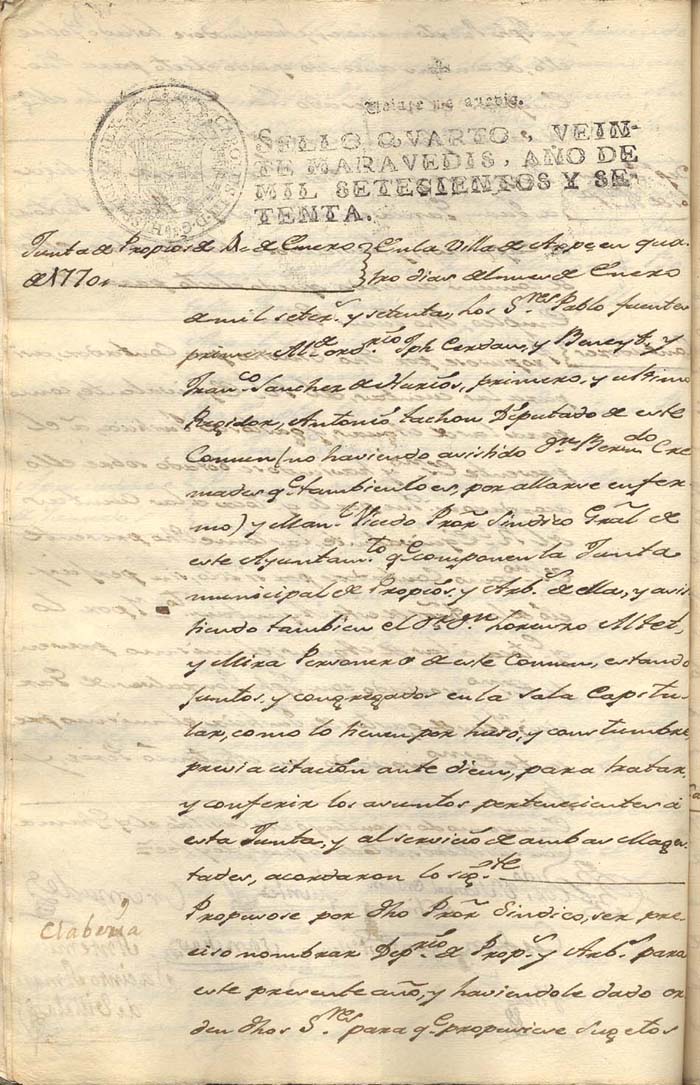 Veinte maravedis.
SELLO QVARTO, VEIN-
TE MARAVEDIS, AÑO DE
MIL SETECIENTOS Y SE-
TENTA.
Junta de Propios de 4 de Enero
de 1770.
En la Villa de Aspe en qua-
tro dias del mes de Enero
de mil setec.s y setenta, los S.res Pablo fuentes
primer Alc.e ord.rio Jph Cerdan, y Beneyto, y
Fran.co Sanchez de Murcia, primero, y ultimo
Regidor, Antonio Cachon Diputado de este
Comun (no haviendo asistido Dn Bern.do Cre
mades q.e tambien lo es, por allarse enfer
mo) y Man.l Vicedo Pror Sindico Gral de
este Ayuntam.to q.e componen la Junta
municipal de Propios, y Arb.s de ella, y asis
tiendo tambien el Sr Dn Lorenzo Altet,
y Mira Personero de este Comun, estando
juntos, y congregados en la sala Capitu-
lar, como lo tienen por huso, y constumbre
previa citacion ante diem, para tratar,
y conferir los asuntos pertenecientes á
esta Junta, y al servicio de ambas Mages
tades, acordaron lo sig.te
Propusose por dho Pror Sindico, ser pre
ciso nombrar Dep.rio de Prop.s y Arb.s para
este presente año, y haviendole dado or
den dhos S.res para q.e propusiese sugetos
Claberia